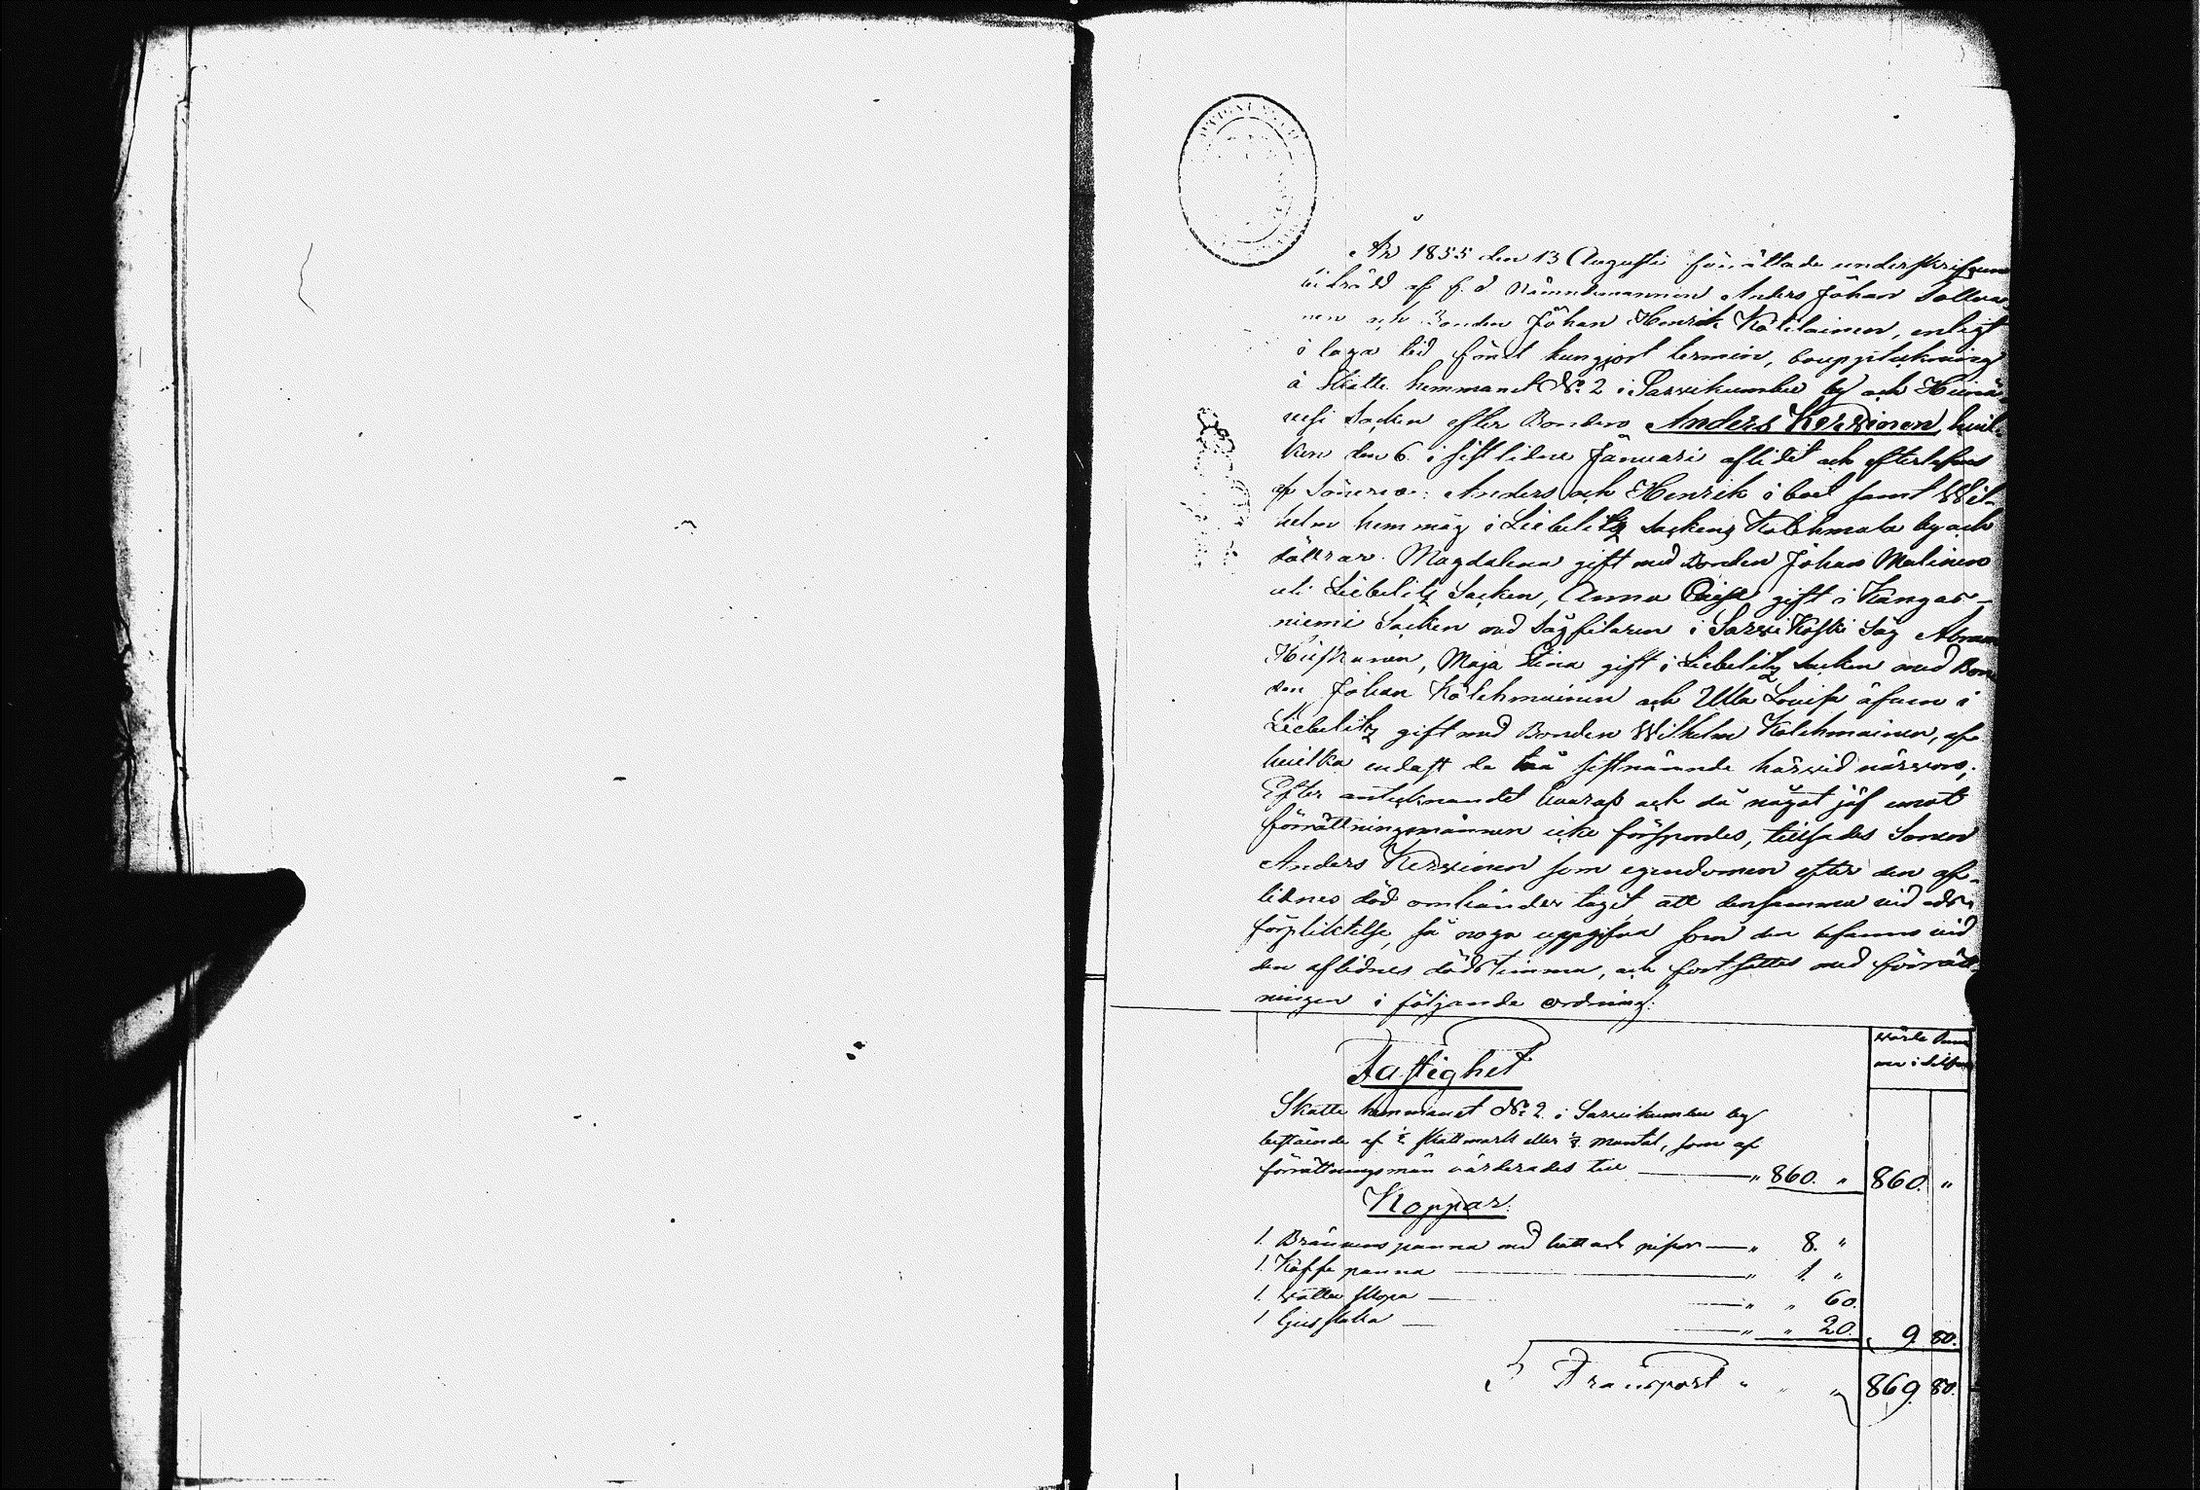 År 1855 den 13 Augusti förrättade undertecknad
biträdd af f. d. Nämndemannen Anders Johan
nen och Bonden Johan Henrik Kolilainen, enligt
i laga tid förut kungjort termin, bouppteckning
å Skatte hemmanet No 2 i Sarvikumbu by och Heinä-
vesi Socken efter Bonden Anders Kervinen, hvil-
ken den 6 i sistlidne Januari aflidit och efterlefves
af Sönerne: Anders och Henrik i boet samt Wil-
helm hemmåg i Liebelitz Sockens Kolehmala by och
döttrar: Magdalena gift med Bonden Johan Malinen
uti Liebelitz Socken, Anna Caisa gift i Kangas-
niemi Socken med Sågfilaren i Sarvikoski Såg Abram
Maja Stina gift i Liebelitz Socken med Bon-
den Johan Kolehmainen och Ulla Lovisa äfven i
Liebelitz gift med Bonden Wilhelm Kolehmainen, af
hvilka endast de två sistnämnde härvid närvoro;
Efter antecknandet hvaraf och då något jäf emot
förrättningsmännen icke förspordes, tillsades Sonen
Anders Kervinen som egendomen efter den af-
lidnes död omhänder tagit att densamma vid eds-
förpliktelse, så noga uppgifva som den befanns vid
den aflidnes dödstimma, och fortsattes med förrätt-
ningen i följande ordning:
Wärde Sum
man i Silfver
Fastighet
Skatte hemmanet No 2 i Sarvikumbu by
bestående af skattmark eller mantal, som af
förrättningsmän värderades till — " 860. " 860. "
Koppar.
1. Bränvins panna med hatt och pipor — " 8. "
1. Kaffe panna — " 1. "
1. Watten skopa — " " 60.
1 ljusstaka — " " 20. 9. 80.
Transport " " " 869. 80.